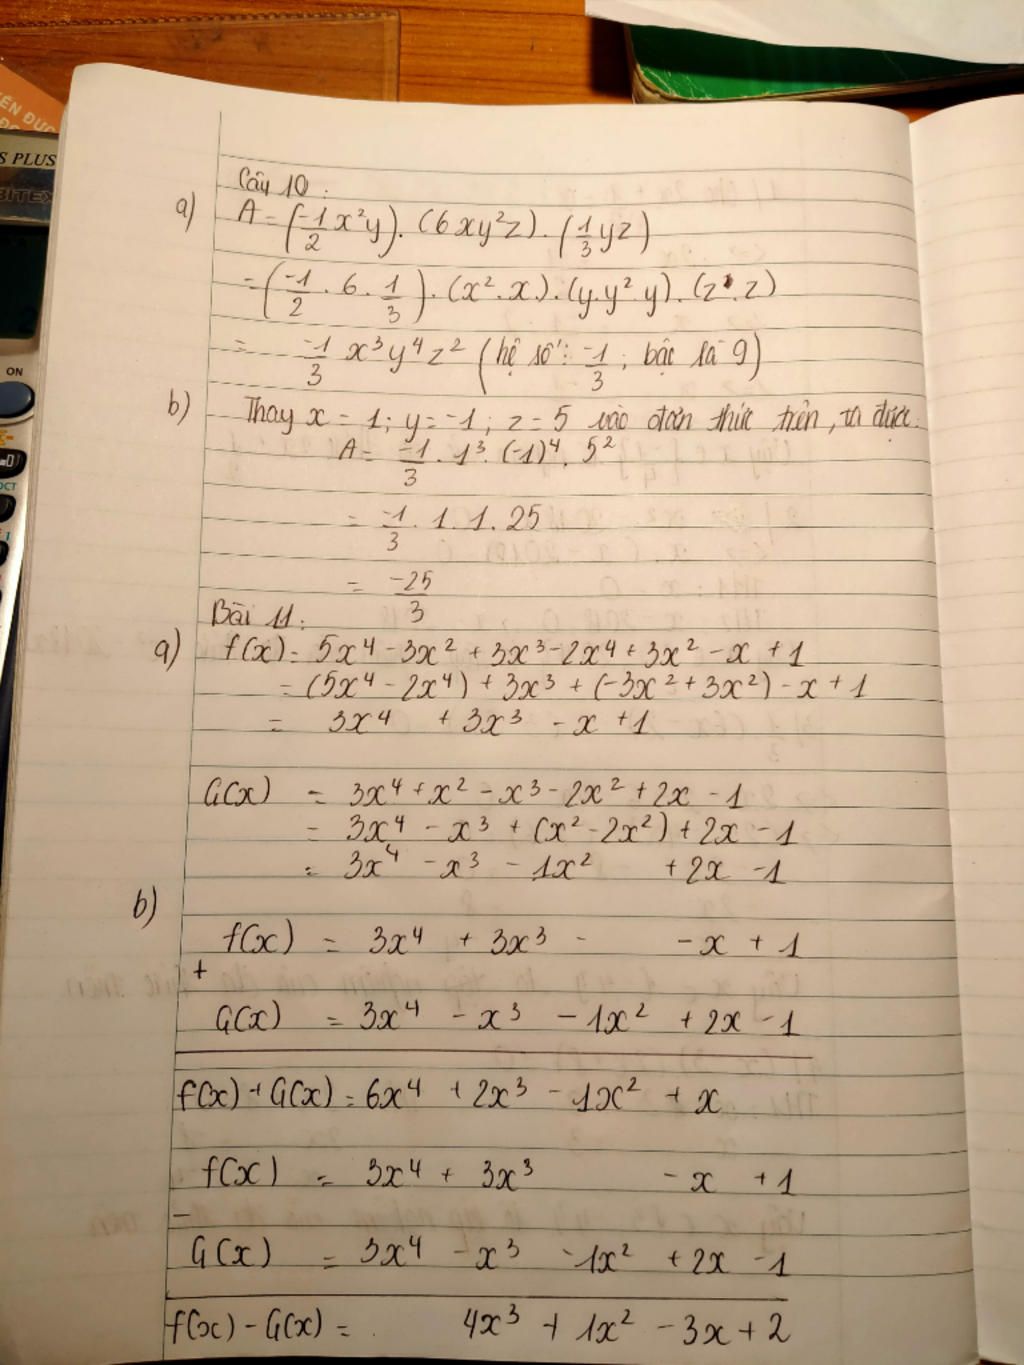 ÊN ĐỨC
S PLUS
ON
Câu 10:
a) A = (-1/2 x²y). (6xy²z). (1/3 yz)
= (-1/2 . 6 . 1/3). (x².x). (y.y².y). (z.z)
= -1/3 x³y⁴z² (hệ số: -1/3; bậc là 9)
b) Thay x = 1; y = -1; z = 5 vào đơn thức trên, ta được:
A = -1/3 . 1³. (-1)⁴. 5²
= -1/3 . 1. 1. 25
= -25/3
Bài 11:
a) f(x) = 5x⁴ - 3x² + 3x³ - 2x⁴ + 3x² - x + 1
= (5x⁴ - 2x⁴) + 3x³ + (-3x² + 3x²) - x + 1
= 3x⁴ + 3x³ - x + 1
G(x) = 3x⁴ + x² - x³ - 2x² + 2x - 1
= 3x⁴ - x³ + (x² - 2x²) + 2x - 1
= 3x⁴ - x³ - 1x² + 2x - 1
b)
f(x) = 3x⁴ + 3x³ - - x + 1
+
G(x) = 3x⁴ - x³ - 1x² + 2x - 1
f(x) + G(x) = 6x⁴ + 2x³ - 1x² + x
f(x) = 3x⁴ + 3x³ - x + 1
-
G(x) = 3x⁴ - x³ - 1x² + 2x - 1
f(x) - G(x) = 4x³ + 1x² - 3x + 2